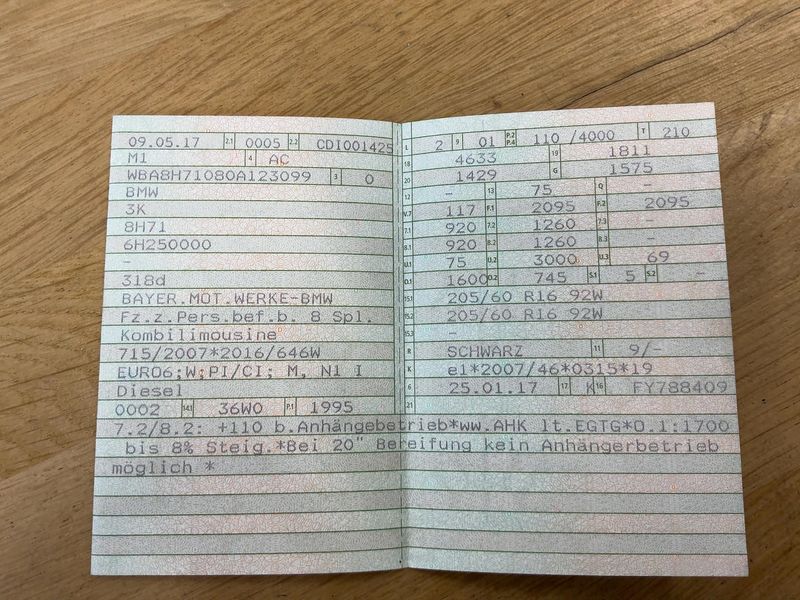 09.05.17 2.1 0005 2.2 CDI001425
M1 4 AC
WBA8H71080A123099 3 0
BMW
3K
8H71
6H250000
-
318d
BAYER.MOT.WERKE-BMW
Fz.z.Pers.bef.b. 8 Spl.
Kombilimousine
715/2007*2016/646W
EURO6;W;PI/CI; M, N1 I
Diesel
0002 14.1 36W0 P.1 1995
L 2 9 01 P.2 P.4 110 /4000 T 210
18 4633 19 1811
20 1429 G 1575
12 - 13 75 Q -
V.7 117 F.1 2095 F.2 2095
7.1 920 7.2 1260 7.3 -
8.1 920 8.2 1260 8.3 -
U.1 75 U.2 3000 U.3 69
O.1 1600 O.2 745 S.1 5 S.2 -
15.1 205/60 R16 92W
15.2 205/60 R16 92W
15.3 -
R SCHWARZ 11 9/-
K e1*2007/46*0315*19
6 25.01.17 17 K 16 FY788409
21
7.2/8.2: +110 b.Anhängebetrieb*ww.AHK lt.EGTG*O.1:1700
bis 8% Steig.*Bei 20" Bereifung kein Anhängerbetrieb
möglich *